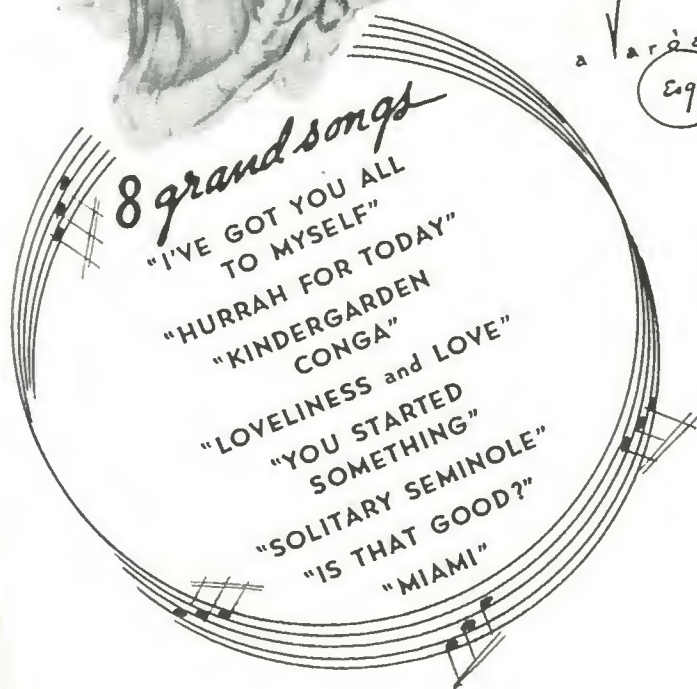 a Vargas
Esq
8 grand songs
"I'VE GOT YOU ALL
TO MYSELF"
"HURRAH FOR TODAY"
"KINDERGARDEN
CONGA"
"LOVELINESS and LOVE"
"YOU STARTED
SOMETHING"
"SOLITARY SEMINOLE"
"IS THAT GOOD?"
"MIAMI"